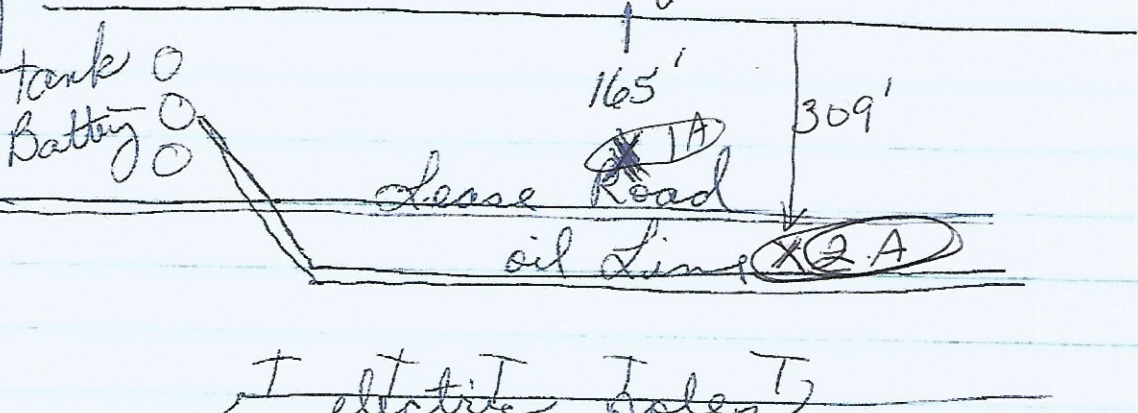 tank
Battery
165'
309'
X 1A
Lease Road
oil Line
X 2A
electric poles